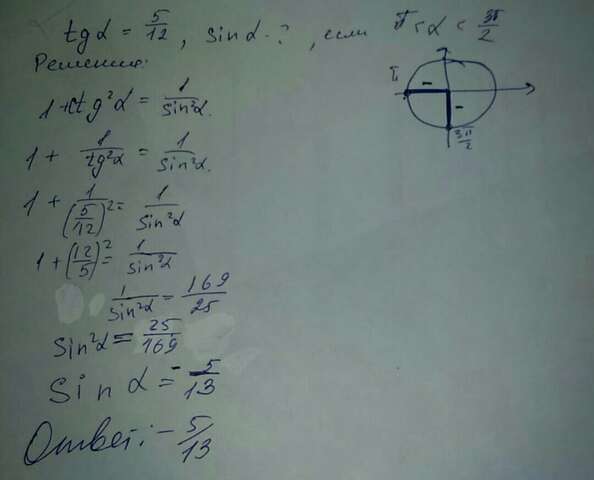 tg α = 5/12, sin α - ?, если π < α < 3π/2
Решение:
1 + ctg²α = 1/sin²α.
1 + 1/tg²α = 1/sin²α.
1 + 1/(5/12)² = 1/sin²α
1 + (12/5)² = 1/sin²α
1/sin²α = 169/25
sin²α = 25/169
sin α = -5/13
Ответ: -5/13
π
-
-
3π/2